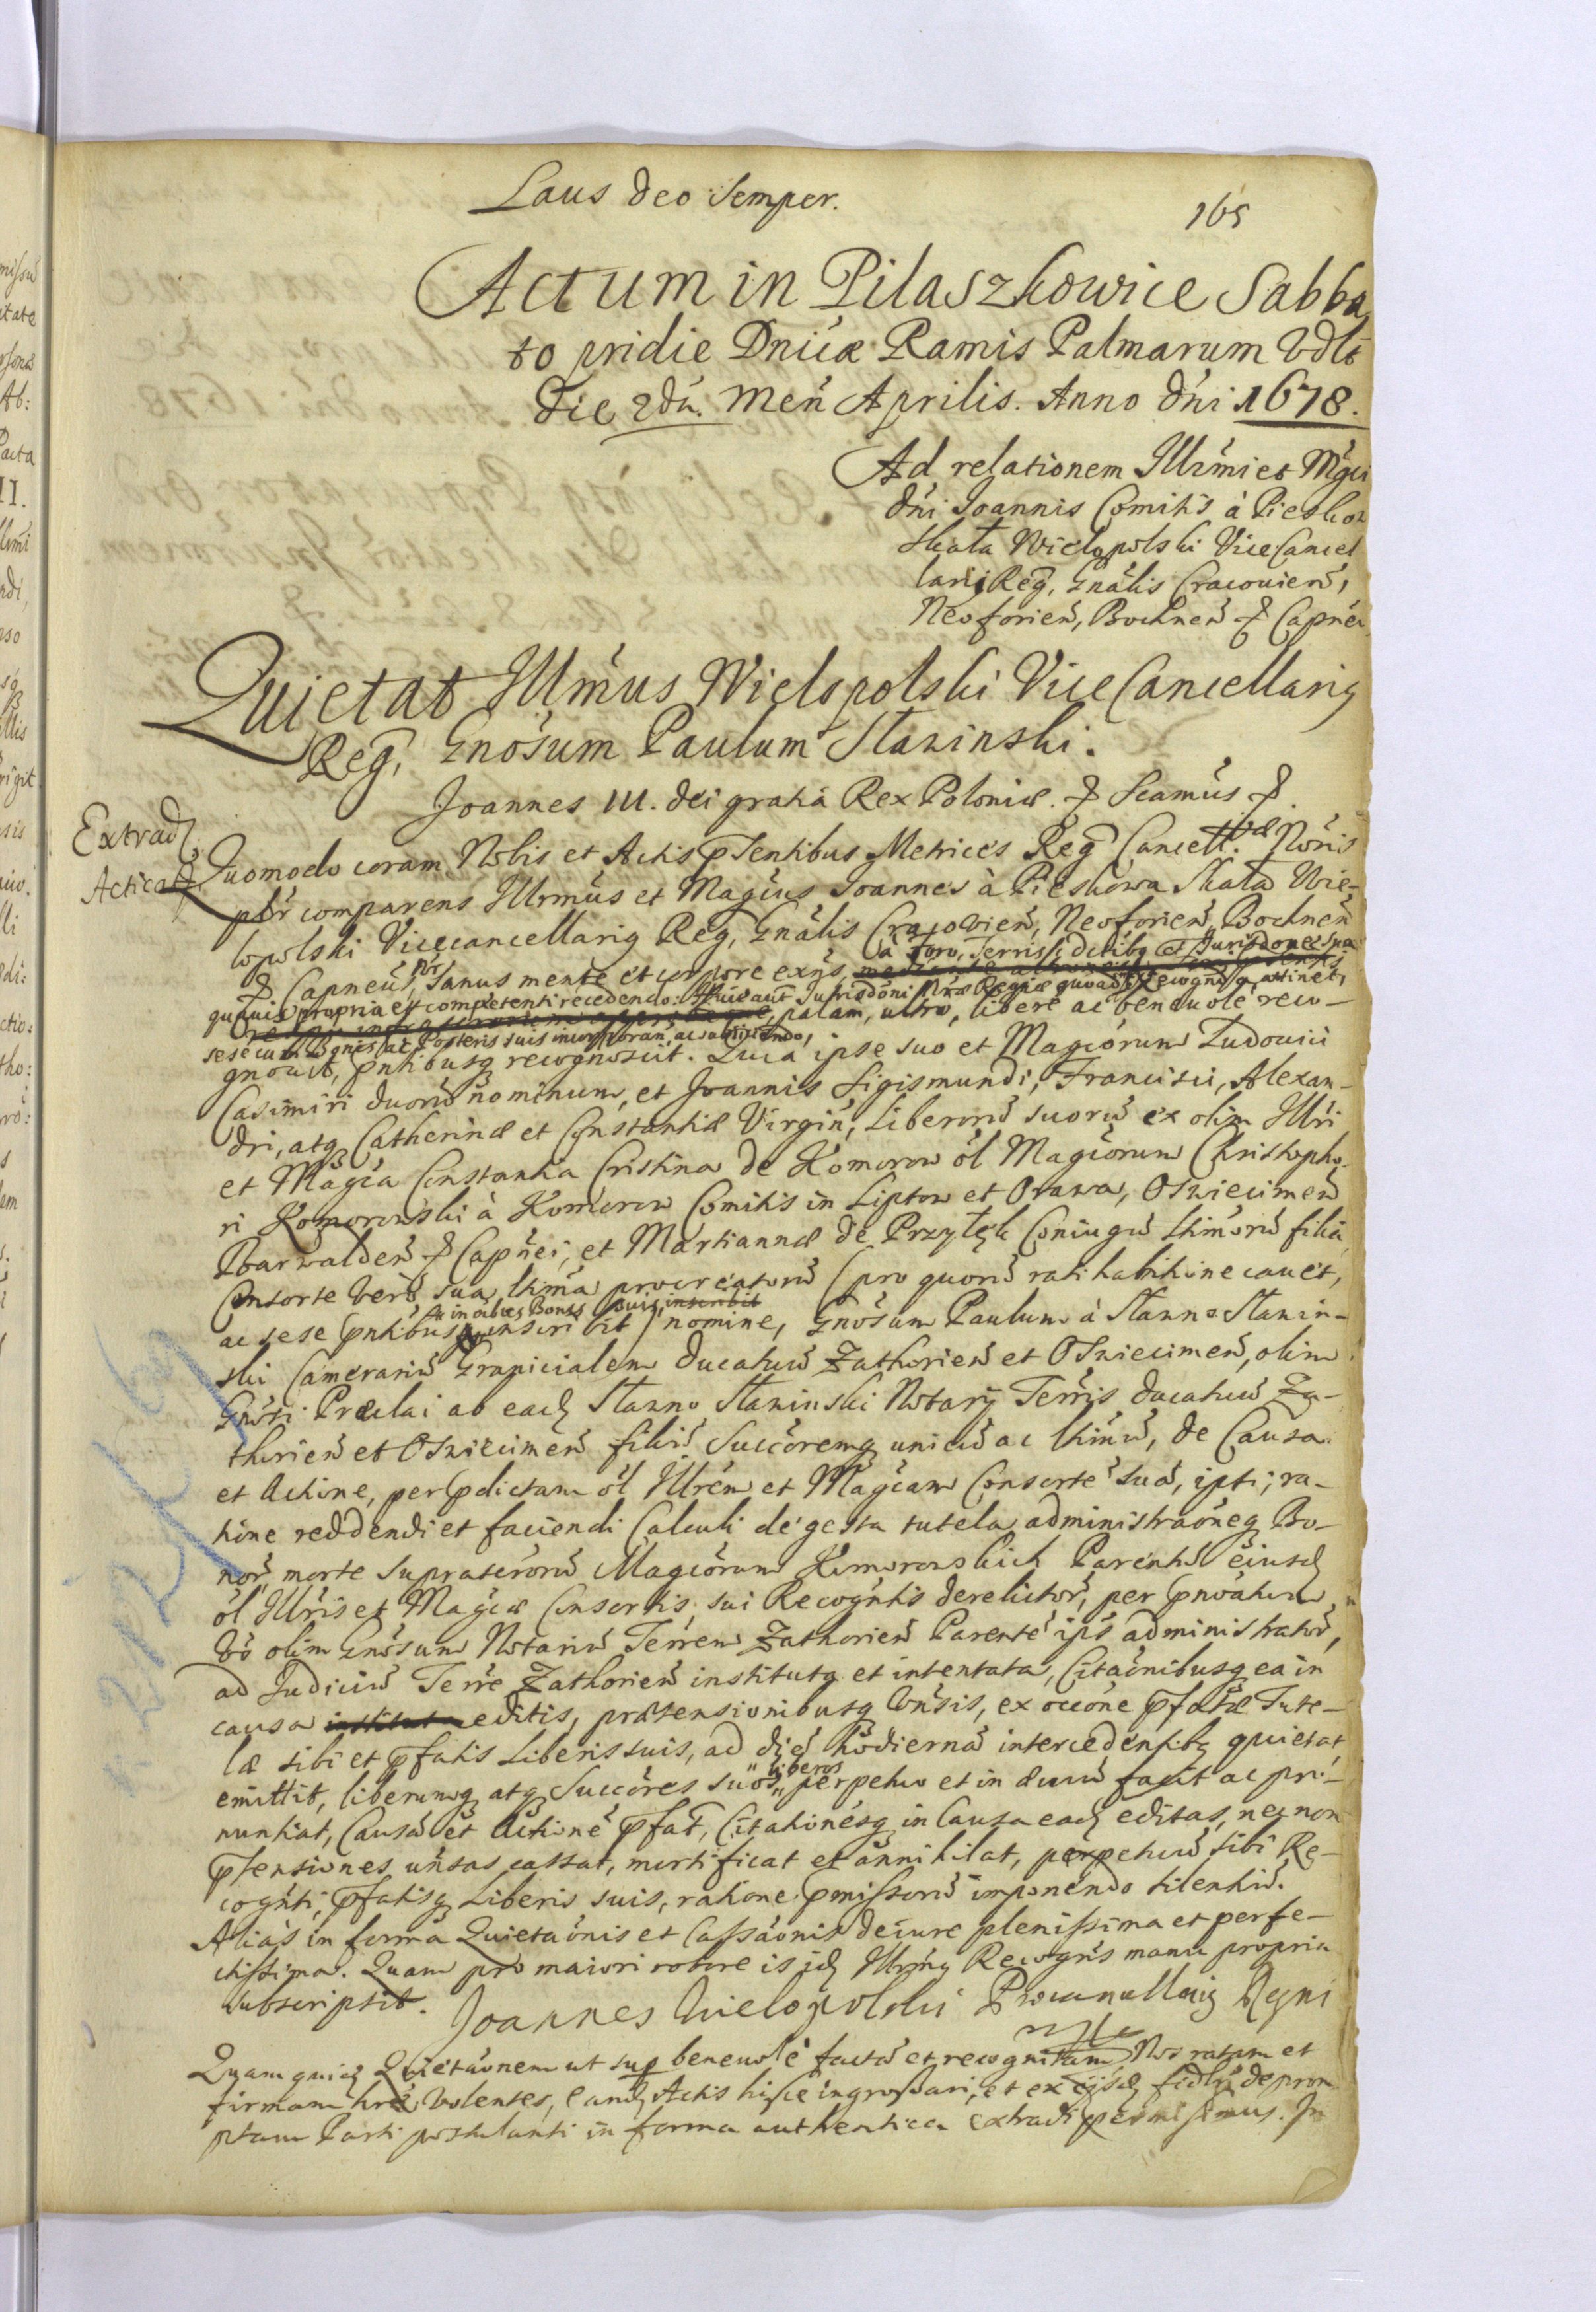 Laus Deo Semper.
165
Actum in Pilaszkowice Sabba
to pridie Dnicæ Ramis Palmarum Vdlt
Die 2da. Men Aprilis. Anno Dni 1678.
Ad relationem Illrmi et Mgci
Dni Joannis Comitis à Pieskow
Skała Wielopolski Vice Cancel
larii Reg, Gnalis Cracovien,
Neoforien, Bochnen & Capnei
Quietat Illmus Wielopolski ViceCancellariq
Reg, Gnosum Paulum Sławinski.
Joannes III. Dei gratia Rex Poloniæ. & Scamus &.
Extrad.
Acticat.
Quomodo coram Nobis et Actis pSentibus Metrices Reg Cancell.væ Noris
plr comparens Illrmus et Magcus Joannes à Pieskowa Skała Wie-
lopolski Vicecancellariq Reg, Gnalis Cracovien, Neoforien, Bochnen
à Foro, Terris, et Jurisdone sua
& Capneus, Sanus mente et corpore exñs,
quavis propria et competenti recedendo: Huic aut Jurisdoni Mtis Regiæ quoad recogn attinet,
palam, ultro, libere ac benevole reco-
sese cum Bonis ac Posteris suis incorporan, ac subiiciendo,
gnovit, pntibusq recognoscit. Quia ipse suo et Magcorum Ludovici
Casimiri duorum nominum, et Joannis Sigismundi, Francisci, Alexan-
dri, atq Catherinæ et Constantiæ Virgin, Liberorum suorum ex olim Illri
et Magca Constantia Cristina de Komorow ol Magcorum Christopho-
ri Komorowski à Komorow Comitis in Liptow et Orawa, Oswiecimen
Barwalden & Capnei, et Martiannæ de Przyłęk Coniugum ltimorum filia
Consorte vero sua ltima procreatorum (pro quorum rati habitione cavet,
in oibus Bonis suis inscribit
ac sese pntibus inscribit) nomine, Gnosum Paulum à Sławno Sławin-
ski Camerarium Granicialem Ducatuum Zathorien et Oswiecimen, olim
Gnosi Præclai ab eadem Sławno Sławinski Notarij Terris Ducatuum Za-
thorien et Oswiecimen filium Succoremq unicum ac ltimum, de Causa
et Actione, per pdictam ol Illrem et Magcam Consortem suam, ipsi, ra-
tione reddendi et faciendi Calculi de gesta tutela administraoneq Bo-
nor morte Suprascrorum Magcorum Komorowskich Parentum eiusd
ol Illris et Magcæ Consortis, sui Recogntis derelictor, per pnoatum
Vo olim Gnosum Notarium Terren Zathorien Parente ips administrator,
ad Judicium Terre Zathorien instituta et intentata, Citaonibusq ea in
causa instituta editis, prætensionibusq Vnsis, ex occone pfatæ Tute-
læ sibi et pfatis Liberis suis, ad diem hodiernam intercedentibq quietat,
Liberos
emittit, liberumq atq Succores suos perpetuo et in ævum facit ac pro-
nuntiat, Causam et Actione pfat, Citationesq in Causa ead editas, necnon
ptensiones unsas cassat, mortificat et annihilat, perpetuum sibi Re-
cognti, pfatisq Liberis suis, ratione pmissorum imponendo silentium.
Alias in forma Quietaonis et Cassaonis de iure plenissima et perfe-
ctissima. Quam pro maiori robore is id Illrmq Recogns manu propria
subscripsit. Joannes Wielopolski Procancellariq Regni
Quam quidem Quietaonem ut sup benevole factam et recognitam Nos ratam et
firmam hre volentes, eand Actis hisce ingrossari, et ex eisd fidlr deprom
ptam Parti postulanti in forma authentica extradi permisimus. In